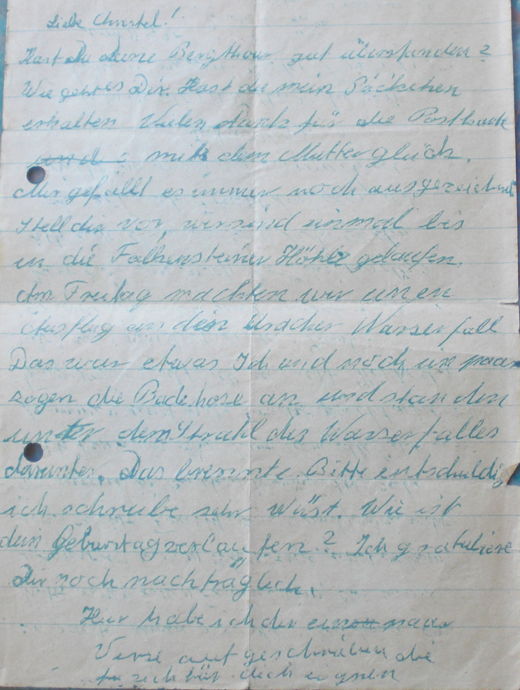 Liebe Christel!
Hast du deine Bergtour gut überstanden?
Wie geht es Dir. Hast du mein Päckchen
erhalten Vielen dank für die Postkarte
und mit dem Mutterglück.
Mir gefällt es immer noch ausgezeichnet
Stell dir vor, wir sind einmal bis
in die Falkensteiner Höhle gelaufen.
Am Freitag machten wir einen
Ausflug an den Uracher Wasserfall
Das war etwas Ich und noch ein paar
zogen die Badehose an und standen
unter dem Strahl des Wasserfalles
darunter. Das brennte. Bitte entschuldig
ich schreibe sehr wüst. Wie ist
dein Geburtag verlaufen? Ich gratuliere
Dir noch nachträglich.
Hier habe ich dir ein paar
Verse aufgeschrieben die
sich für dich eignen